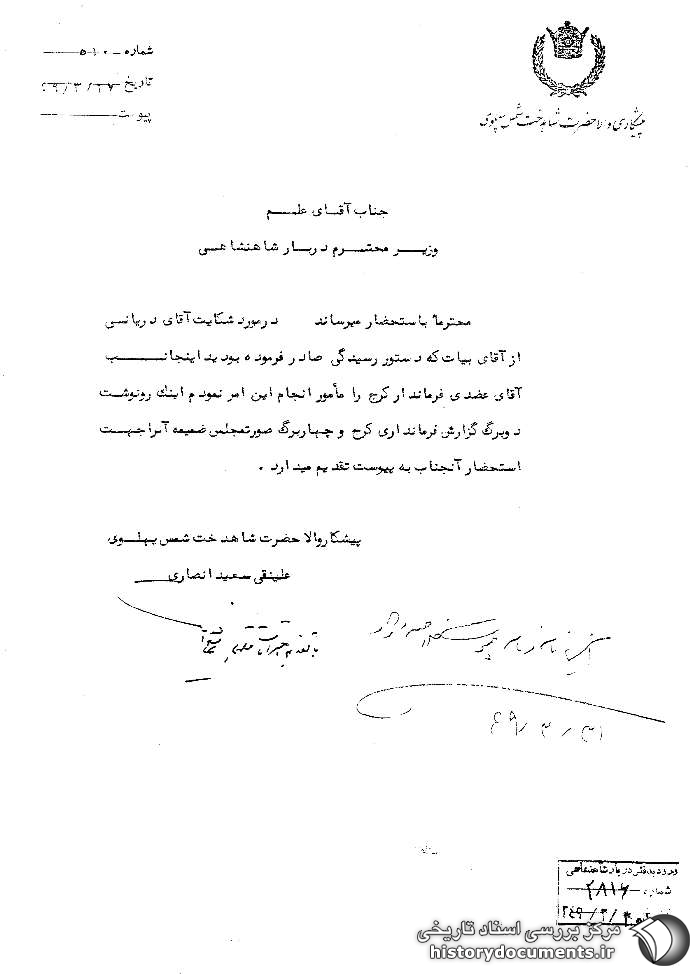 پیشکاری والاحضرت شاهدخت شمس پهلوی
شماره ۵۱۰
تاریخ ۴۹/۳/۲۷
پیوست
جناب آقای علم
وزیر محترم دربار شاهنشاهی
محترما باستحضار میرساند درمورد شکایت آقای دریانی
از آقای بیات که دستور رسیدگی صادر فرموده بودید اینجانب
آقای عضدی فرماندار کرج را مأمور انجام این امر نمودم اینك رونوشت
دوبرگ گزارش فرمانداری کرج و چهاربرگ صورتمجلس ضمیمه آنرا جهت
استحضار آنجناب به پیوست تقدیم میدارد .
پیشکار والاحضرت شاهدخت شمس پهلوی
علینقی سعید انصاری
۴۹/۳/۳۱
ورود بدفتر دربار شاهنشاهی
شماره ۲۸۱۶
مرکز بررسی اسناد تاریخی
historydocuments.ir